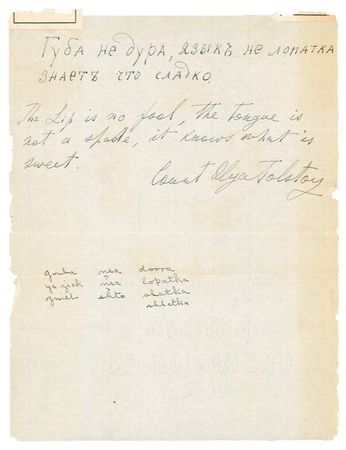 Губа не дура, языкъ не лопатка
знаетъ что сладко
The Lip is no fool, the tongue is
not a spade, it knows what is
sweet.
Count Ilya Tolstoy
gouba nea doora
ya zick nea lopatka
zniet shto slatka